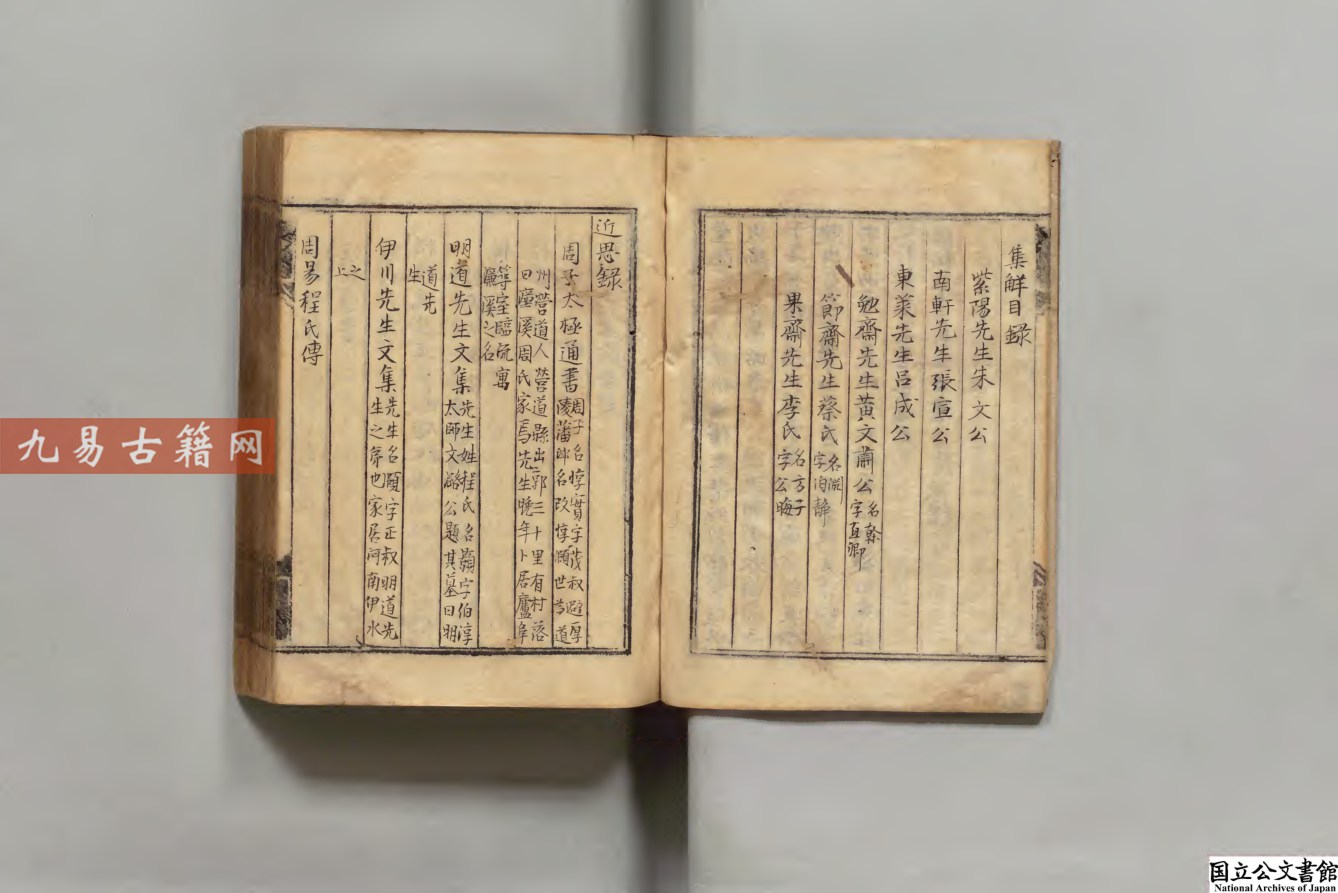 集觧目録
紫陽先生朱文公
南軒先生張宣公
東萊先生呂成公
勉齋先生黄文肅公名榦字直卿
節齋先生蔡氏名淵字伯静
果齋先生李氏名方子字公晦
近思録
周子太極通書周子名惇實字茂叔避厚陵藩邸名改惇頤世爲道
州營道人營道縣出郭三十里有村落曰濂溪周氏家焉先生晚年卜居廬阜
築室臨流寓濂溪之名
明道先生文集先生姓程氏名顥字伯淳太師文潞公題其墓曰明
道先生
伊川先生文集先生名頤字正叔明道先生之弟也家居河南伊水
之上
周易程氏傳
九易古籍网
国立公文書館
National Archives of Japan